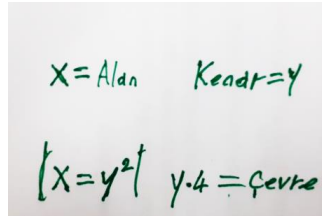 X = Alan Kenar = y
|x = y²| y.4 = Çevre